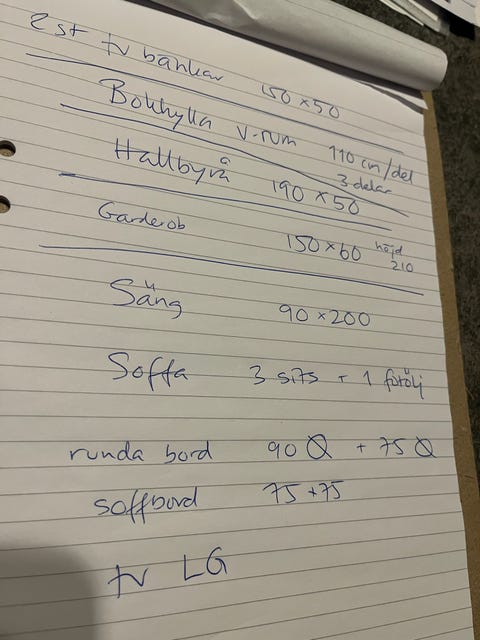 2 st tv bänkar 150 x 50
Bokhylla v-rum 110 cm/del
3 delar
Hallbyrå 190 x 50
Garderob 150 x 60 höjd
210
Säng 90 x 200
Soffa 3 sits + 1 fotölj
runda bord 90 Ø + 75 Ø
soffbord 75 + 75
tv LG